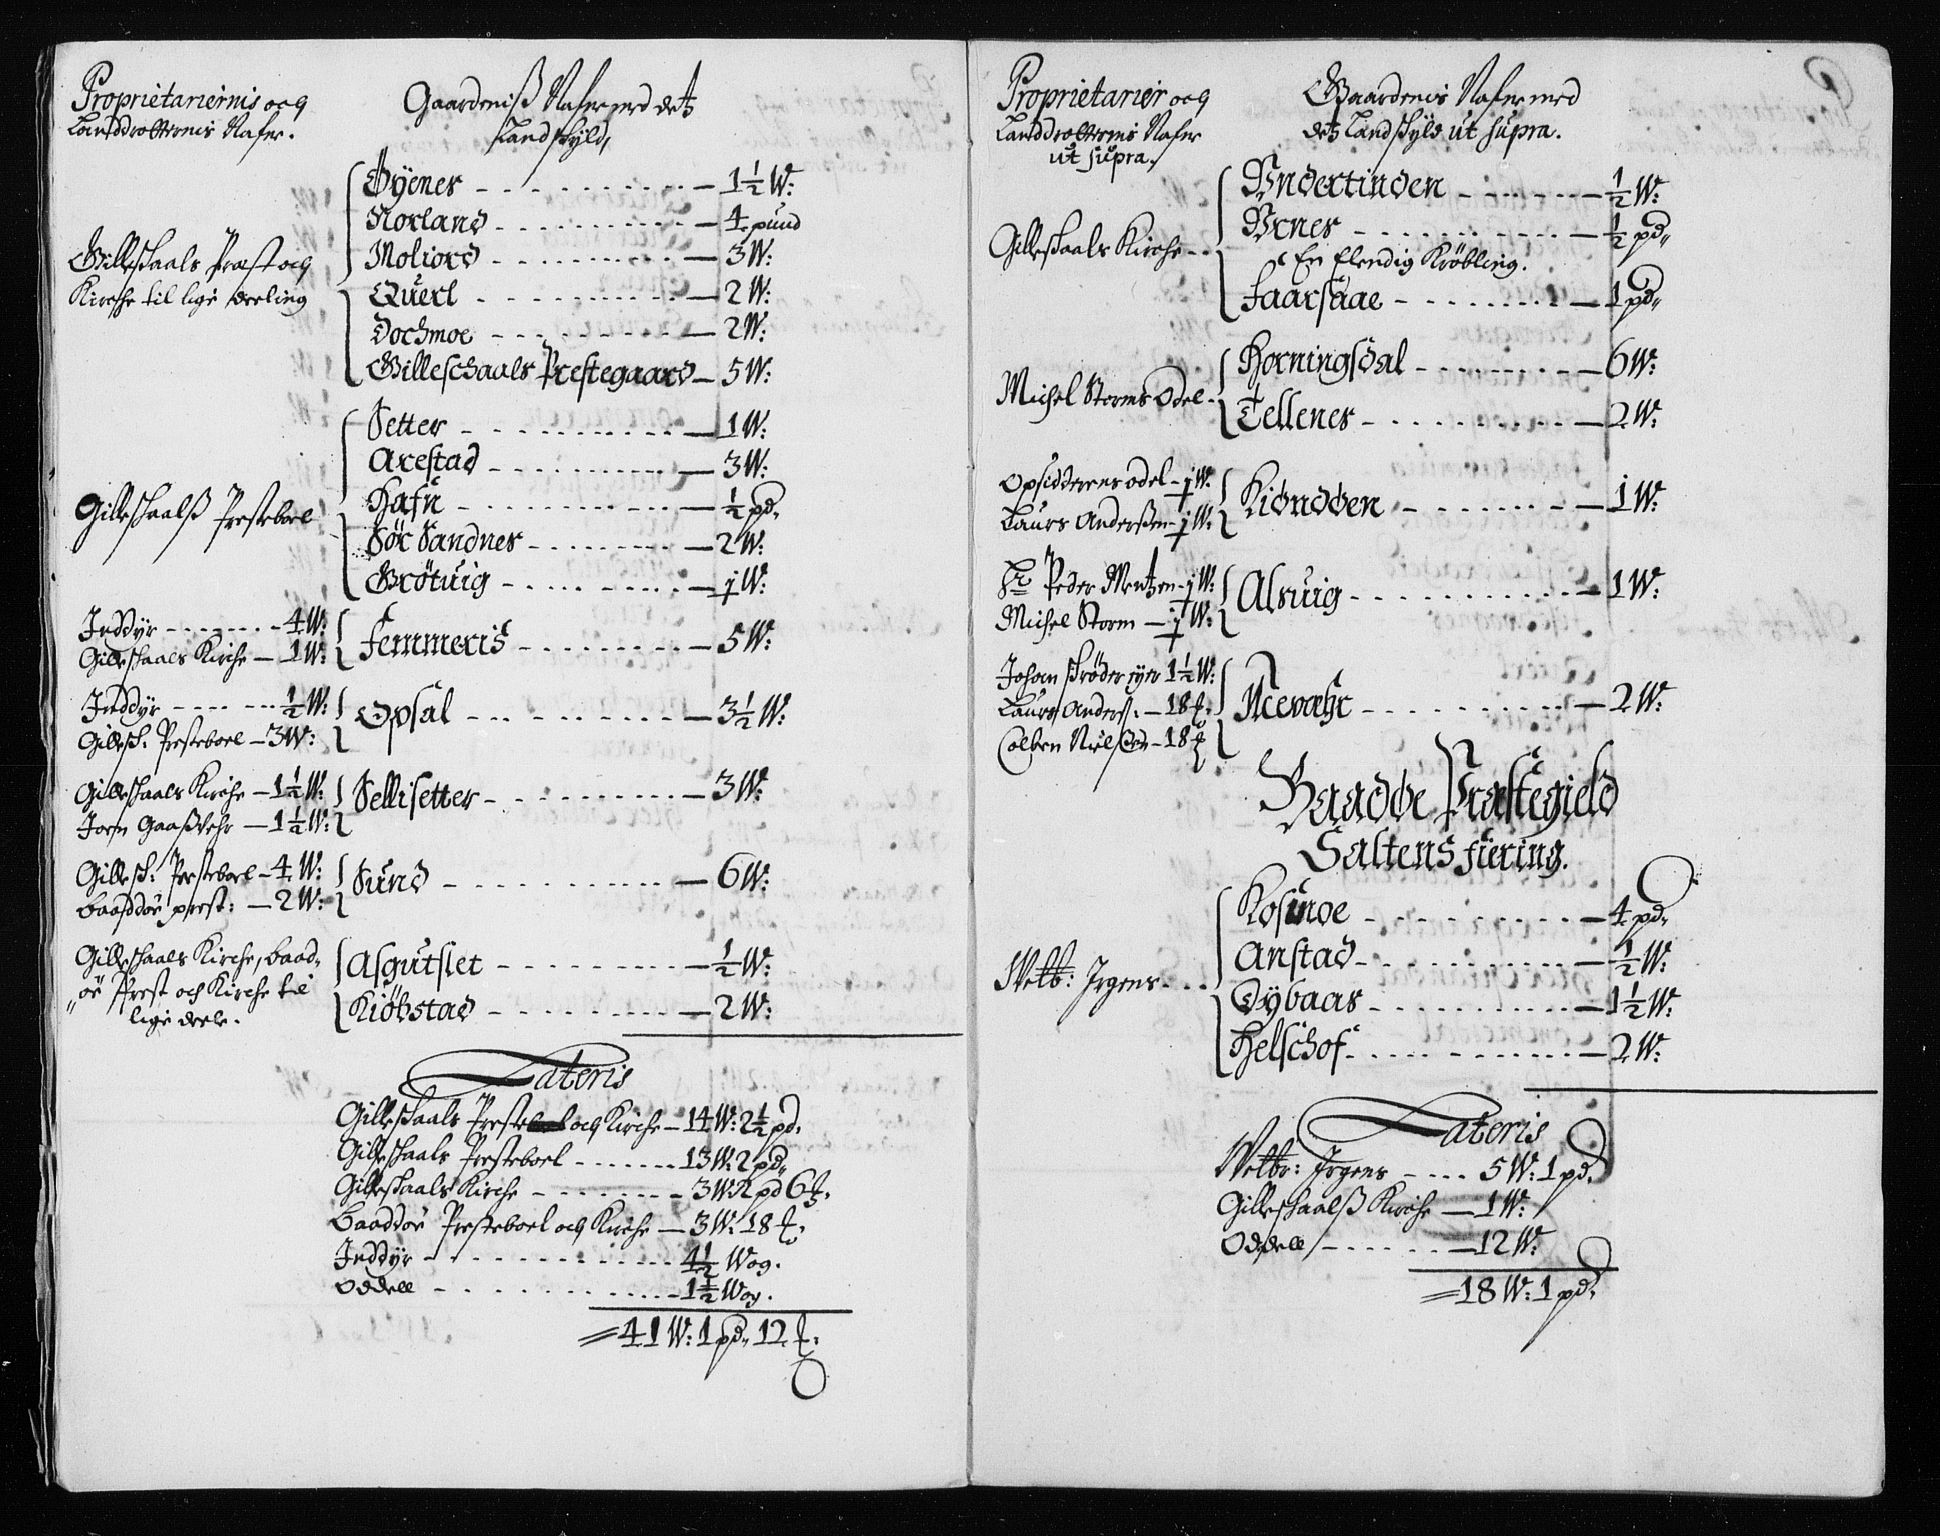 Proprietariernis och
Landdrotternis Nafne.
Gaardeniß Nafne med detz
Landskyld,
Gilleskaals Præst och
Kirche til lige deeling
Øÿenes - - - 1½ W:
Norland - - - 4 pund
Moliord - - - 3 W:
Querl - - - 2 W:
Dochmoe - - - 2 W:
Gilleschaals Prestegaard - 5 W:
Gilleskaalß Presteboel
Setter - - - 1 W:
Arestad - - - 3 W:
Hafn - - - ½ pd.
Sör Sandnes - - - 2 W:
Grötuig - - - ½ W:
Inddÿr - - - 4 W:
Gilleskaals Kirche - 1 W:
Femmeris - - - 5 W:
Inddÿr - - - ½ W:
Gillesch: Presteboel - 3 W:
Opsal - - - 3½ W:
Gilleskaals Kirche - 1½ W:
Joen Gaaßvehr - 1½ W:
Sellisetter - - - 3 W:
Gillesch: Presteboel - 4 W:
baaddöe prest: - 2 W:
Sund - - - 6 W:
Gilleskaals Kirche, baad-
"öe Prest och Kirche til
lige deele.
Asgutslet - - - ½ W:
Kiöbstad - - - 2 W:
Lateris
Gilleskaals Preste och Kirche - 14 W: 2½ pd.
Gilleskaals Presteboel - - - 13 W: 2 pd.
Gilleskaals Kirche - - - 3 W: 2 pd 6
Baaddöe Presteboel och Kirche - 3 W: 18
Inddÿr - - - 4½ Wog.
Oddell - - - 1½ Wog.
= 41 W: 1 pd. 12
Proprietarier och
Landdrotternis Nafne
ut supra.
Gaardenis Nafne med
detz Landskÿld ut supra.
Gilleskaals Kirche - -
Undertinden - - - ½ W:
Urnes - - - ½ pd.
En Elendig Kröbling.
Faarsaae - - - 1 pd.
Michel Storms Odel -
Horningsdal - - - 6 W:
Tellenes - - - 2 W:
Opsidderens odel - ½ W:
Laurs Anderßen - ½ W:
Kiöndöen - - - 1 W:
Hr Peder Mentzen - ½ W:
Michel Storm - ½ W:
Alsuig - - - 1 W:
Johan Schröder eyer 1½ W:
Laurs Anders: - 18
Colben Nielßen - 18
Acevæhr - - - 2 W:
Baadöe Præstegield
Saltens fiering.
Velb: Irgens - - -
Kosmoe - - - 4 pd.
Anstad - - - ½ W:
Dÿbaas - - - 1½ W:
Helschof - - - 2 W:
Lateris
Velbr: Irgens - - - 5 W: 1 pd.
Gilleskaalß Kirche - 1 W:
Oddell - - - 12 W:
= 18 W: 1 pd.